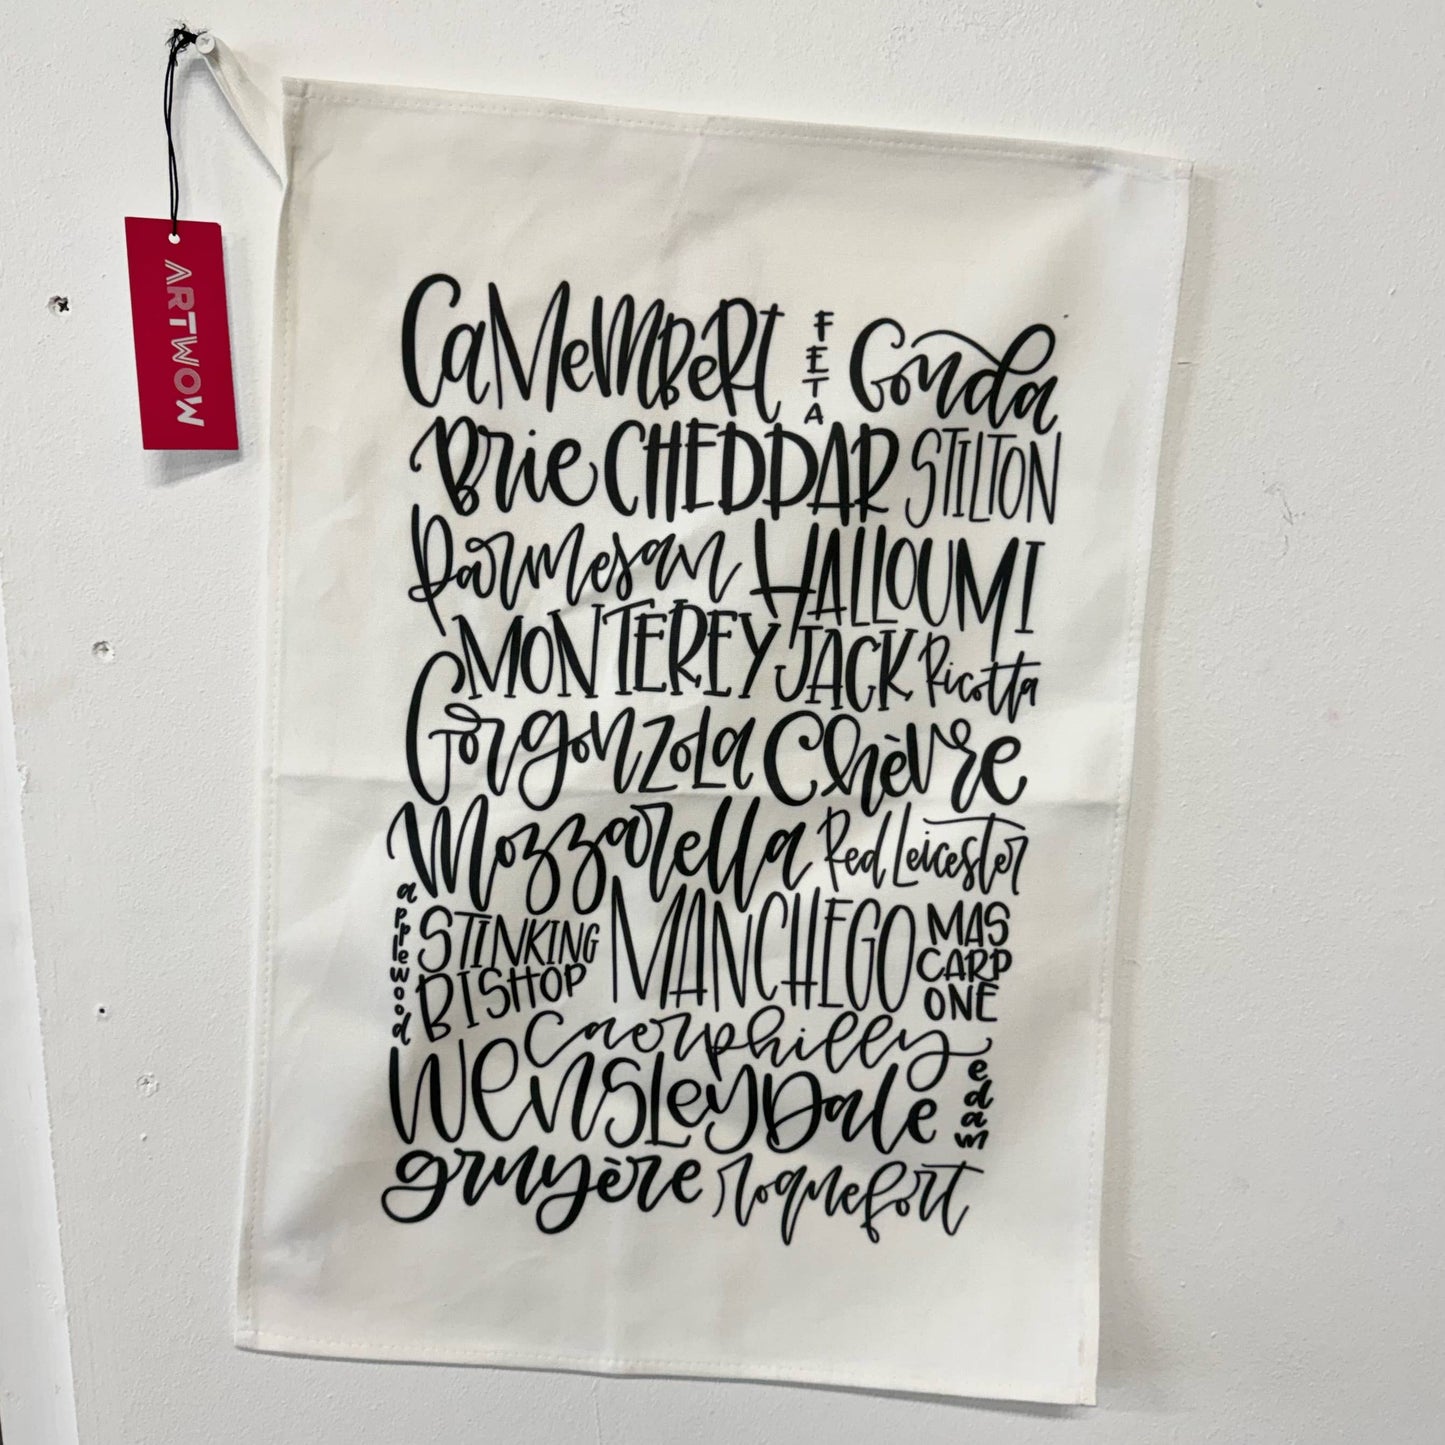 ARTWOW
CaMeMBeRt FETA Gouda
Brie CHEDDAR STILTON
Parmesan HALLOUMI
MONTEREY JACK Ricotta
GorgonzoLa Chèvre
Mozzarella Red Leicester
applewood STINKING BISHOP MANCHEGO MASCARPONE
Caerphilly
WensLeyDale edam
gruyère roquefort